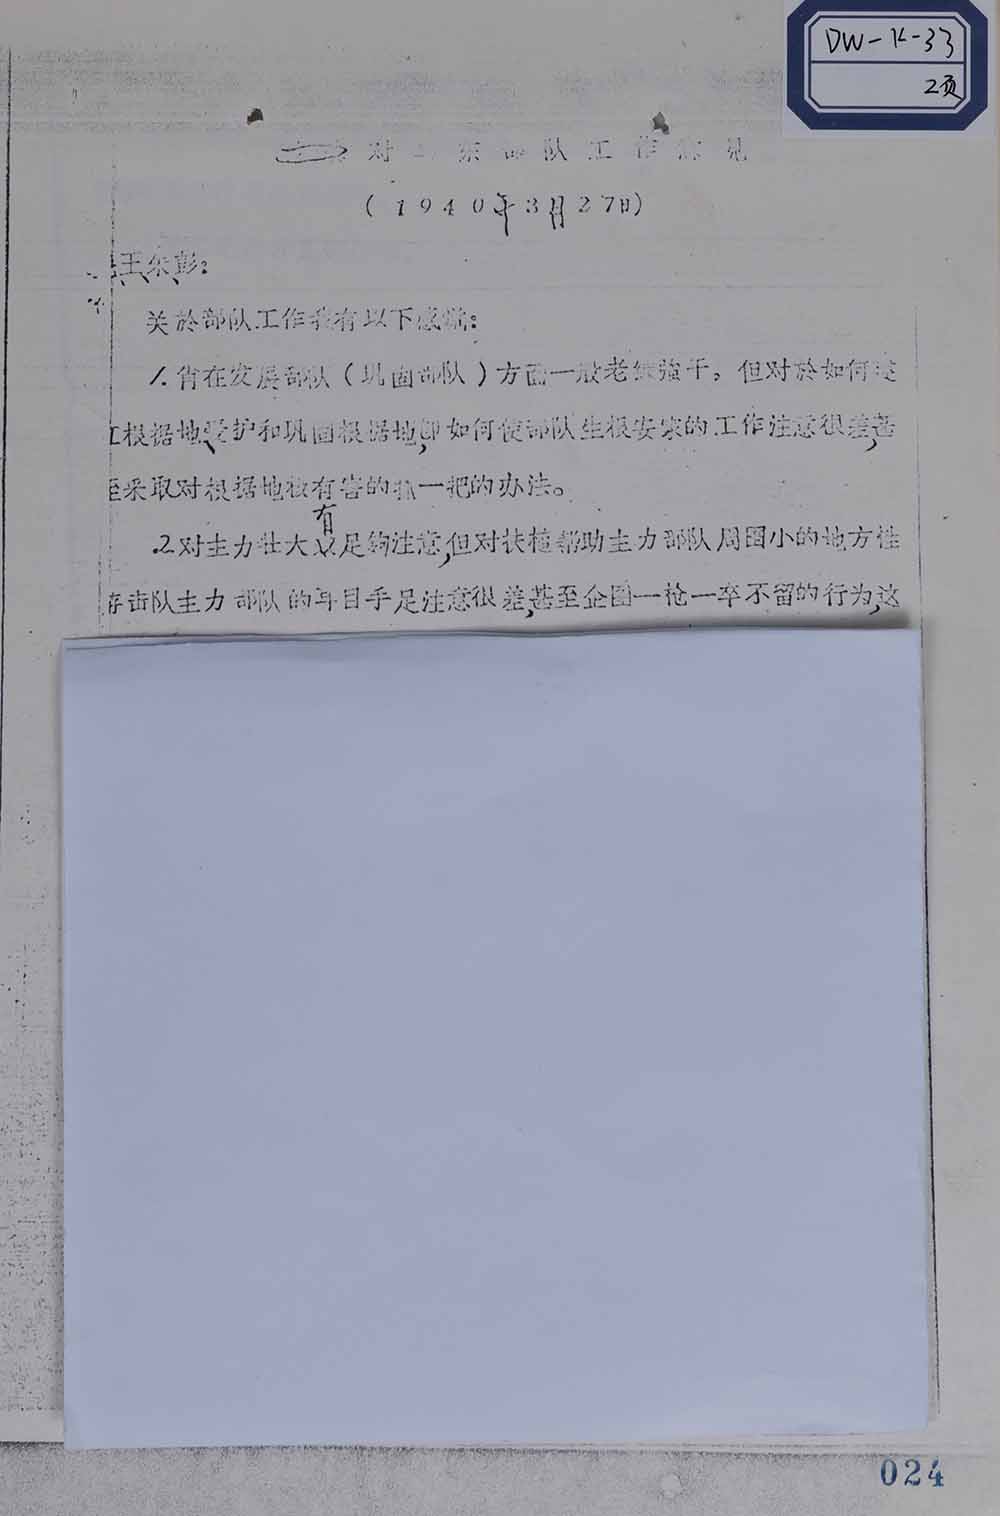 DW-K-33
2页
对东部队工作意见
(1940年3月27日)
王朱彭:
关於部队工作我有以下感觉:
1.肖在发展部队(巩固部队)方面一般老练强干,但对於如何建
立根据地爱护和巩固根据地,即如何使部队生根安家的工作注意很差,甚
至采取对根据地极有害的抓一把的办法。
2.对主力壮大有足够注意,但对扶植帮助主力部队周围小的地方性
游击队主力部队的耳目手足注意很差,甚至企图一枪一卒不留的行为,这
024